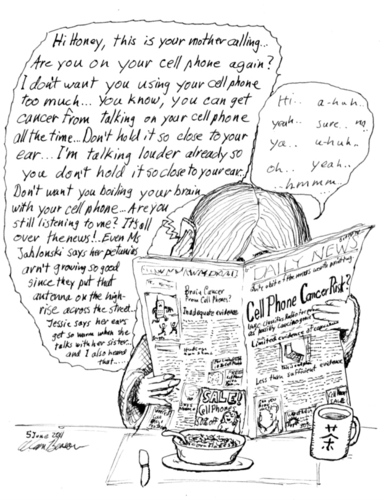 Hi Honey, this is your mother calling...
Are you on your cell phone again?
I don't want you using your cell phone
too much... You know, you can get
cancer from talking on your cell phone
all the time... Don't hold it so close to your
ear... I'm talking louder already so
you don't hold it so close to your ear..
Don't want you boiling your brain
with your cell phone... Are you
still listening to me? It's all
over the news!.. Even Ms
Jablonski says her petunias
arn't growing so good
since they put that
antenna on the high-
rise across the street...
Jessie says her ears
get so warm when she
talks with her sister...
and I also heard
that.....
Hi.. a-huh..
yeah.. sure.. no..
ya.. u-huh..
oh.. yeah..
...hmmmm..
DAILY NEWS
Cell Phone Cancer Risk?
Limited evidence of
Less than sufficient evidence
Brain Cancer
From Cell Phones?
Inadequate evidence
SALE!
Cell Phone
off
茶
5 June 2011